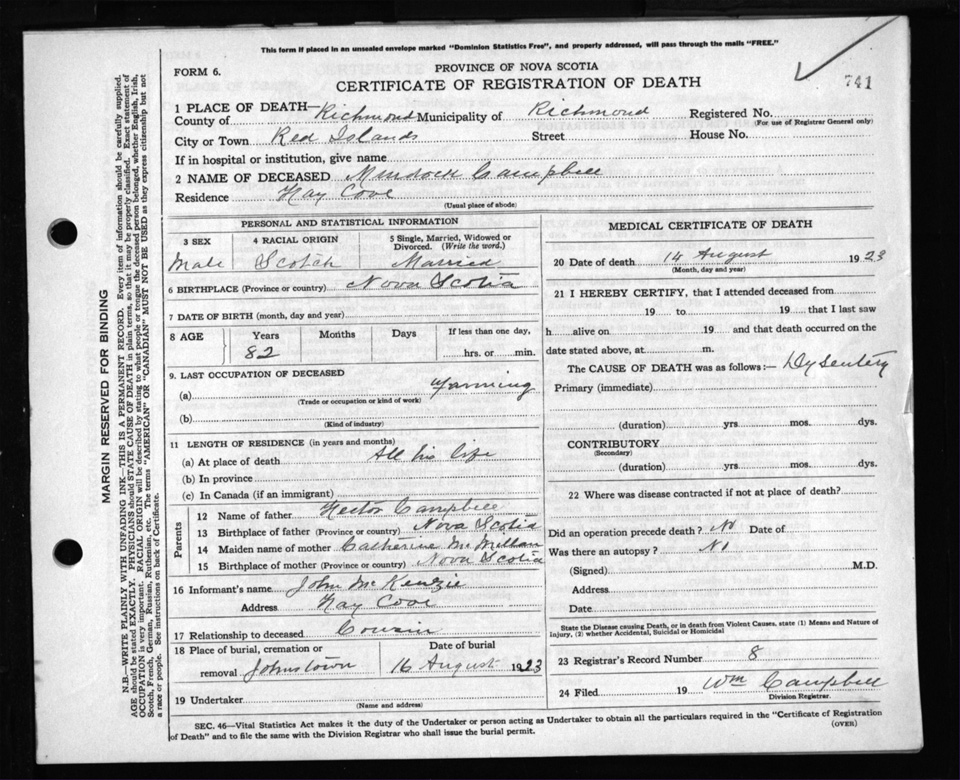 This form if placed in an unsealed envelope marked "Dominion Statistics Free", and properly addressed, will pass through the mails "FREE."
FORM 6.
PROVINCE OF NOVA SCOTIA
CERTIFICATE OF REGISTRATION OF DEATH
741
1 PLACE OF DEATH—
County of Richmond Municipality of Richmond Registered No.
(For use of Registrar General only)
City or Town Red Islands Street House No.
If in hospital or institution, give name
2 NAME OF DECEASED Murdoch Campbell
Residence Hay Cove
(Usual place of abode)
PERSONAL AND STATISTICAL INFORMATION
3 SEX 4 RACIAL ORIGIN 5 Single, Married, Widowed or Divorced. (Write the word.)
Male Scotch Married
6 BIRTHPLACE (Province or country) Nova Scotia
7 DATE OF BIRTH (month, day and year)
8 AGE Years Months Days If less than one day,
82 hrs. or min.
9. LAST OCCUPATION OF DECEASED
(a) Farming
(Trade or occupation or kind of work)
(b)
(Kind of industry)
11 LENGTH OF RESIDENCE (in years and months)
(a) At place of death All his life
(b) In province
(c) In Canada (if an immigrant)
Parents
12 Name of father Hector Campbell
13 Birthplace of father (Province or country) Nova Scotia
14 Maiden name of mother Catherine McMillan
15 Birthplace of mother (Province or country) Nova Scotia
16 Informant's name John McKenzie
Address Hay Cove
17 Relationship to deceased Cousin
18 Place of burial, cremation or removal Johnstown
Date of burial
16 August 1923
19 Undertaker
(Name and address)
MEDICAL CERTIFICATE OF DEATH
20 Date of death 14 August 1923
(Month, day and year)
21 I HEREBY CERTIFY, that I attended deceased from
19 to 19 that I last saw
h alive on 19 and that death occurred on
date stated above, at m.
The CAUSE OF DEATH was as follows:— Dysentery
Primary (immediate)
(duration) yrs. mos. dys.
CONTRIBUTORY
(Secondary)
(duration) yrs. mos. dys.
22 Where was disease contracted if not at place of death?
Did an operation precede death? No Date of
Was there an autopsy? No
(Signed) M.D.
Address
Date
State the Disease causing Death, or in death from Violent Causes, state (1) Means and Nature of
Injury, (2) whether Accidental, Suicidal or Homicidal
23 Registrar's Record Number 8
24 Filed 19 Wm Campbell
Division Registrar.
SEC. 46—Vital Statistics Act makes it the duty of the Undertaker or person acting as Undertaker to obtain all the particulars required in the "Certificate of Registration
of Death" and to file the same with the Division Registrar who shall issue the burial permit.
(OVER)
MARGIN RESERVED FOR BINDING
N.B.—WRITE PLAINLY WITH UNFADING INK—THIS IS A PERMANENT RECORD. Every item of information should be carefully supplied.
AGE should be stated EXACTLY. PHYSICIANS should STATE CAUSE OF DEATH in plain terms, so that it may be properly classified. Exact statement of
OCCUPATION is very important. RACIAL ORIGIN will be described by stating to what people or tongue the deceased person belonged, whether English, Irish,
Scotch, French, German, Russian, Ruthenian, etc. The terms "AMERICAN" or "CANADIAN" MUST NOT BE USED as they express citizenship but not
a race or people. See instructions on back of Certificate.